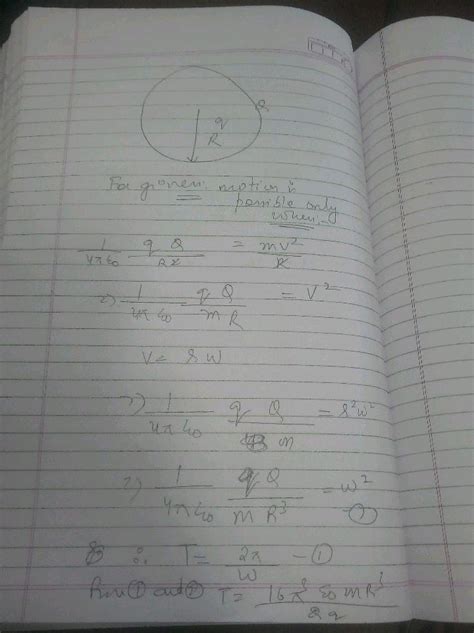 Q
q
R
For given motion is
possible only
when.
1/4πε₀ qQ/R² = mv²/R
⇒ 1/4πε₀ qQ/mR = V²
V = rω
⇒ 1/4πε₀ qQ/m = r²ω²
⇒ 1/4πε₀ qQ/mR³ = ω² — ②
∴ T = 2π/ω — ①
From ① and ② T = 16π³ε₀mR³/Qq